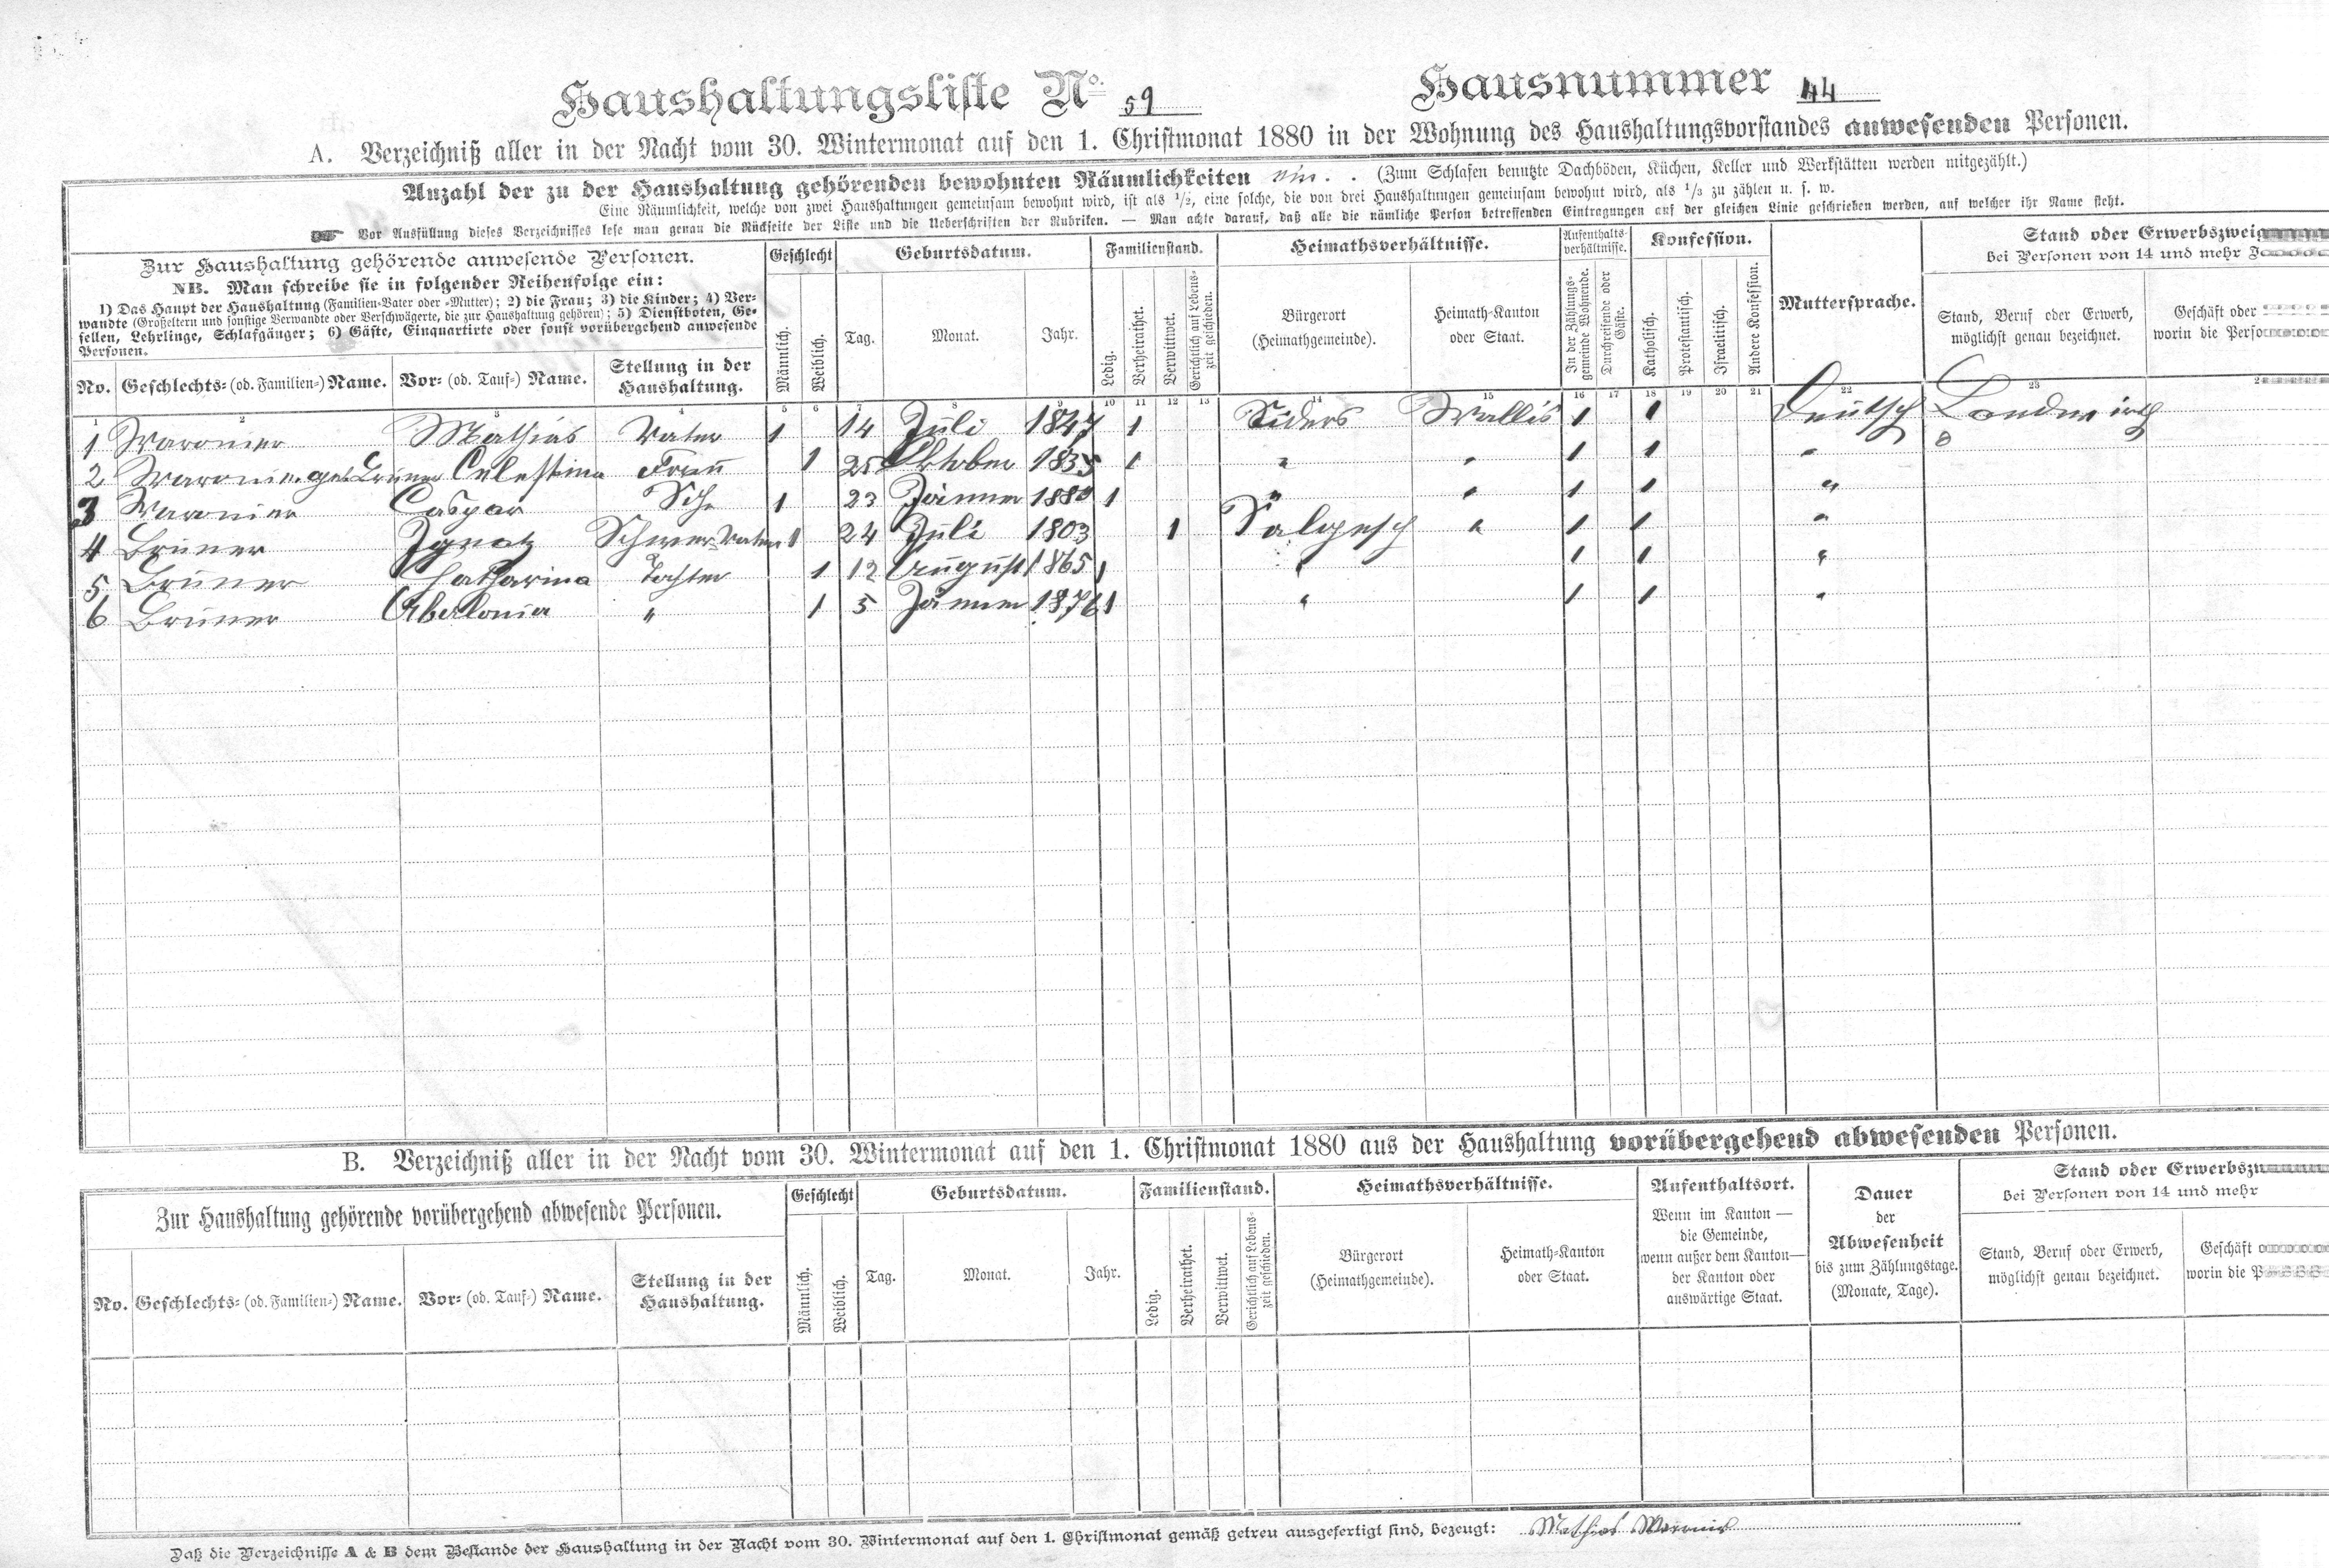 Haushaltungsliste No. 59 Hausnummer 44
A. Verzeichniß aller in der Nacht vom 30. Wintermonat auf den 1. Christmonat 1880 in der Wohnung des Haushaltungsvorstandes anwesenden Personen.
Anzahl der zu der Haushaltung gehörenden bewohnten Räumlichkeiten ein. . (Zum Schlafen benutzte Dachböden, Küchen, Keller und Werkstätten werden mitgezählt.)
Eine Räumlichkeit, welche von zwei Haushaltungen gemeinsam bewohnt wird, ist als 1/2, eine solche, die von drei Haushaltungen gemeinsam bewohnt wird, als 1/3 zu zählen u. s. w.
☞ Vor Ausfüllung dieses Verzeichnisses lese man genau die Rückseite der Liste und die Ueberschriften der Rubriken. — Man achte darauf, daß alle die nämliche Person betreffenden Eintragungen auf der gleichen Linie geschrieben werden, auf welcher ihr Name steht.
Zur Haushaltung gehörende anwesende Personen.
NB. Man schreibe sie in folgender Reihenfolge ein:
1) Das Haupt der Haushaltung (Familien-Vater oder -Mutter); 2) die Frau; 3) die Kinder; 4) Ver-
wandte (Großeltern und sonstige Verwandte oder Verschwägerte, die zur Haushaltung gehören); 5) Dienstboten, Ge-
sellen, Lehrlinge, Schlafgänger; 6) Gäste, Einquartirte oder sonst vorübergehend anwesende
Personen.
No. Geschlechts- (od. Familien-) Name. Vor- (od. Tauf-) Name. Stellung in der
Haushaltung.
Geschlecht
Männlich. Weiblich.
Geburtsdatum.
Tag. Monat. Jahr.
Familienstand.
Ledig. Verheirathet. Verwittwet. Gerichtlich auf Lebens-
zeit geschieden.
Heimathsverhältnisse.
Bürgerort
(Heimathgemeinde).
Heimath-Kanton
oder Staat.
Aufenthalts-
verhältnisse.
In der Zählungs-
gemeinde Wohnende.
Durchreisende oder
Gäste.
Konfession.
Katholisch. Protestantisch. Israelitisch. Andere Konfession.
Muttersprache.
Stand oder Erwerbszweig
bei Personen von 14 und mehr
Stand, Beruf oder Erwerb,
möglichst genau bezeichnet.
Geschäft oder
worin die Perso
1 2 3 4 5 6 7 8 9 10 11 12 13 14 15 16 17 18 19 20 21 22 23
1 Waronier Mathias Vater 1 14 Juli 1847 1 Siders Wallis 1 1 Deutsch Landwirth
2 Waronier geb. Brunner Celestina Frau 1 25 Oktober 1835 1 " " 1 1 "
3 Waronier Caspar Soh 1 23 Jänner 1880 1 " " 1 1 "
4 Bruner Ignatz Schwer-Vater 1 24 Juli 1803 1 Salgesch " 1 1 "
5 Bruner Catharina Tochter 1 12 August 1865 1 " 1 1 "
6 Bruner " 1 5 Jänner 1876 1 " 1 1 "
B. Verzeichniß aller in der Nacht vom 30. Wintermonat auf den 1. Christmonat 1880 aus der Haushaltung vorübergehend abwesenden Personen.
Zur Haushaltung gehörende vorübergehend abwesende Personen.
No. Geschlechts- (od. Familien-) Name. Vor- (od. Tauf-) Name. Stellung in der
Haushaltung.
Geschlecht
Männlich. Weiblich.
Geburtsdatum.
Tag. Monat. Jahr.
Familienstand.
Ledig. Verheirathet. Verwittwet. Gerichtlich auf Lebens-
zeit geschieden.
Heimathsverhältnisse.
Bürgerort
(Heimathgemeinde).
Heimath-Kanton
oder Staat.
Aufenthaltsort.
Wenn im Kanton —
die Gemeinde,
wenn außer dem Kanton—
der Kanton oder
auswärtige Staat.
Dauer
der
Abwesenheit
bis zum Zählungstage.
(Monate, Tage).
Stand oder Erwerbszw
bei Personen von 14 und mehr
Stand, Beruf oder Erwerb,
möglichst genau bezeichnet.
Geschäft
worin die P
Daß die Verzeichnisse A & B dem Bestande der Haushaltung in der Nacht vom 30. Wintermonat auf den 1. Christmonat gemäß getreu ausgefertigt sind, bezeugt: Mathias